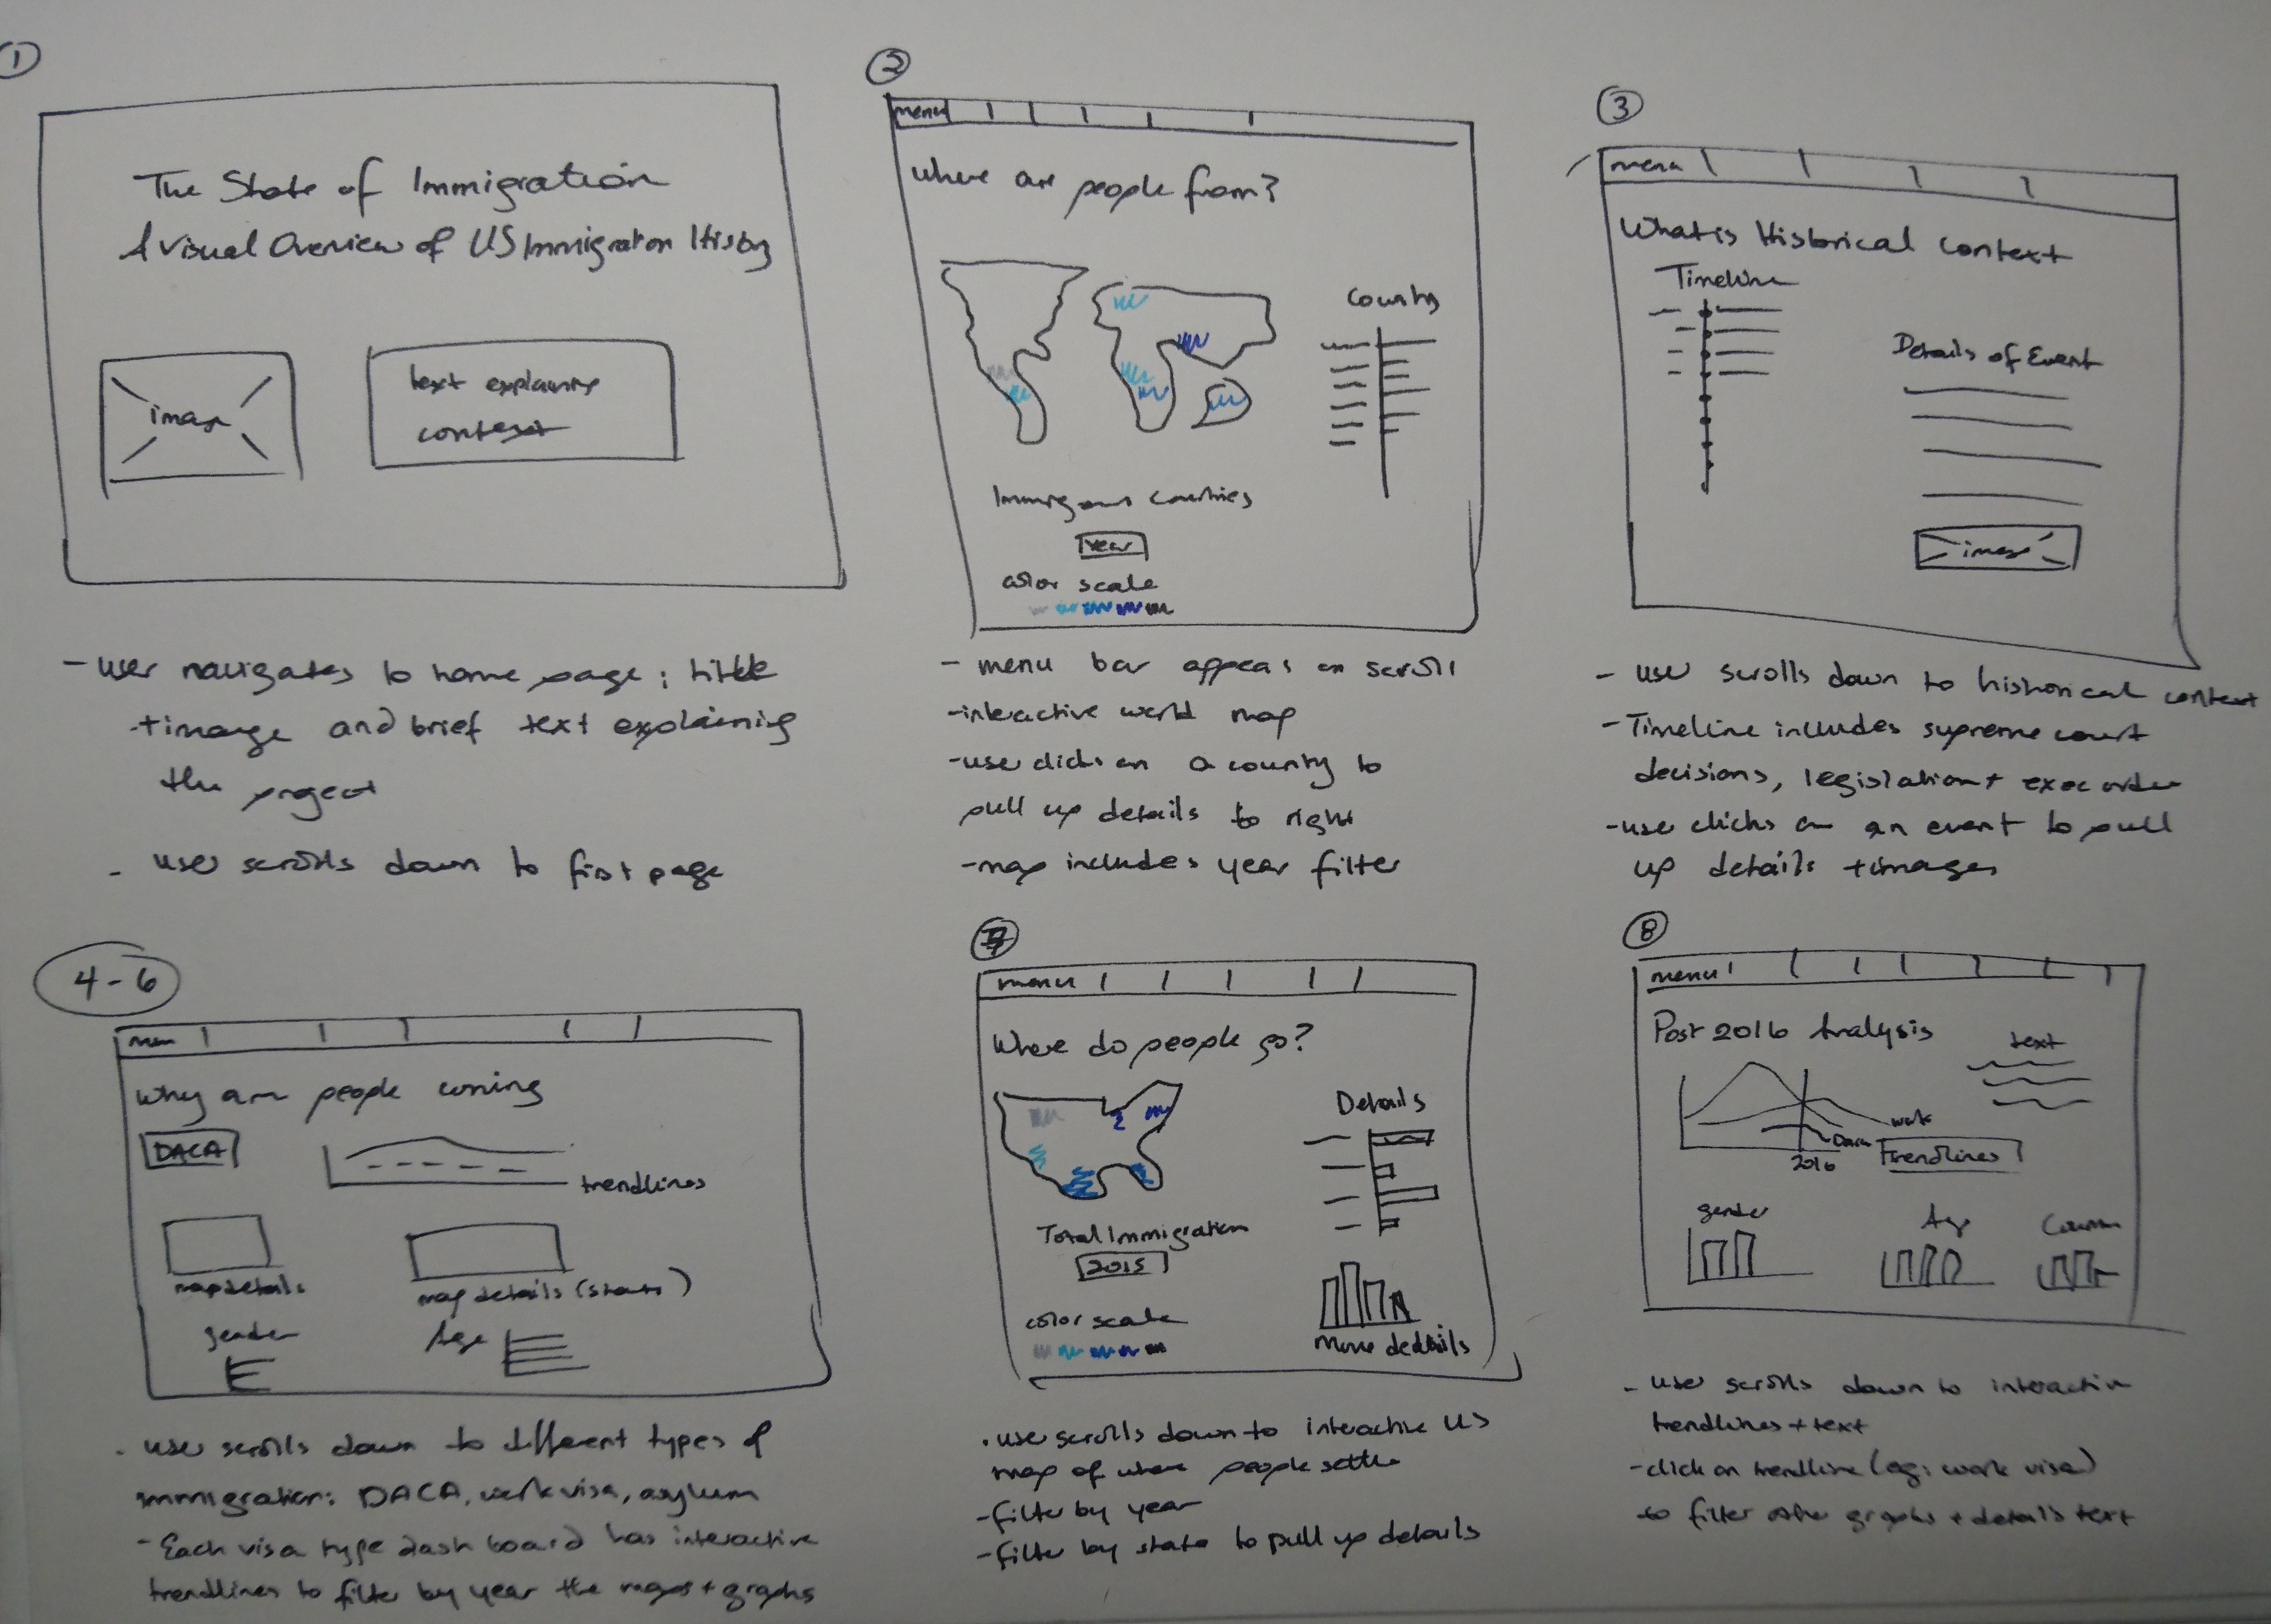 1
The State of Immigration
A Visual Overview of US Immigration History
image
text explaining
context
- user navigates to home page; title
+ image and brief text explaining
the project
- user scrolls down to first page
2
menu
where are people from?
Country
Immigrant countries
Year
color scale
- menu bar appears on scroll
- interactive world map
- user clicks on a country to
pull up details to right
- map includes year filter
3
menu
What is Historical context
Timeline
Details of Event
image
- user scrolls down to historical context
- Timeline includes supreme court
decisions, legislation + exec order
- user clicks on an event to pull
up details + images
4-6
menu
Why are people coming
DACA
trendlines
map details
map details (states)
gender
Age
- user scrolls down to different types of
immigration: DACA, work visa, asylum
- Each visa type dash board has interactive
trendlines to filter by year the maps + graphs
7
menu
Where do people go?
Details
Total Immigration
2015
color scale
More details
- user scrolls down to interactive US
map of where people settle
- filter by year
- filter by state to pull up details
8
menu
Post 2016 Analysis
text
work
Daca
2016
Trendlines
gender
Age
- user scrolls down to interactive
trendlines + text
- click on trendline (eg: work visa)
to filter other graphs + details text